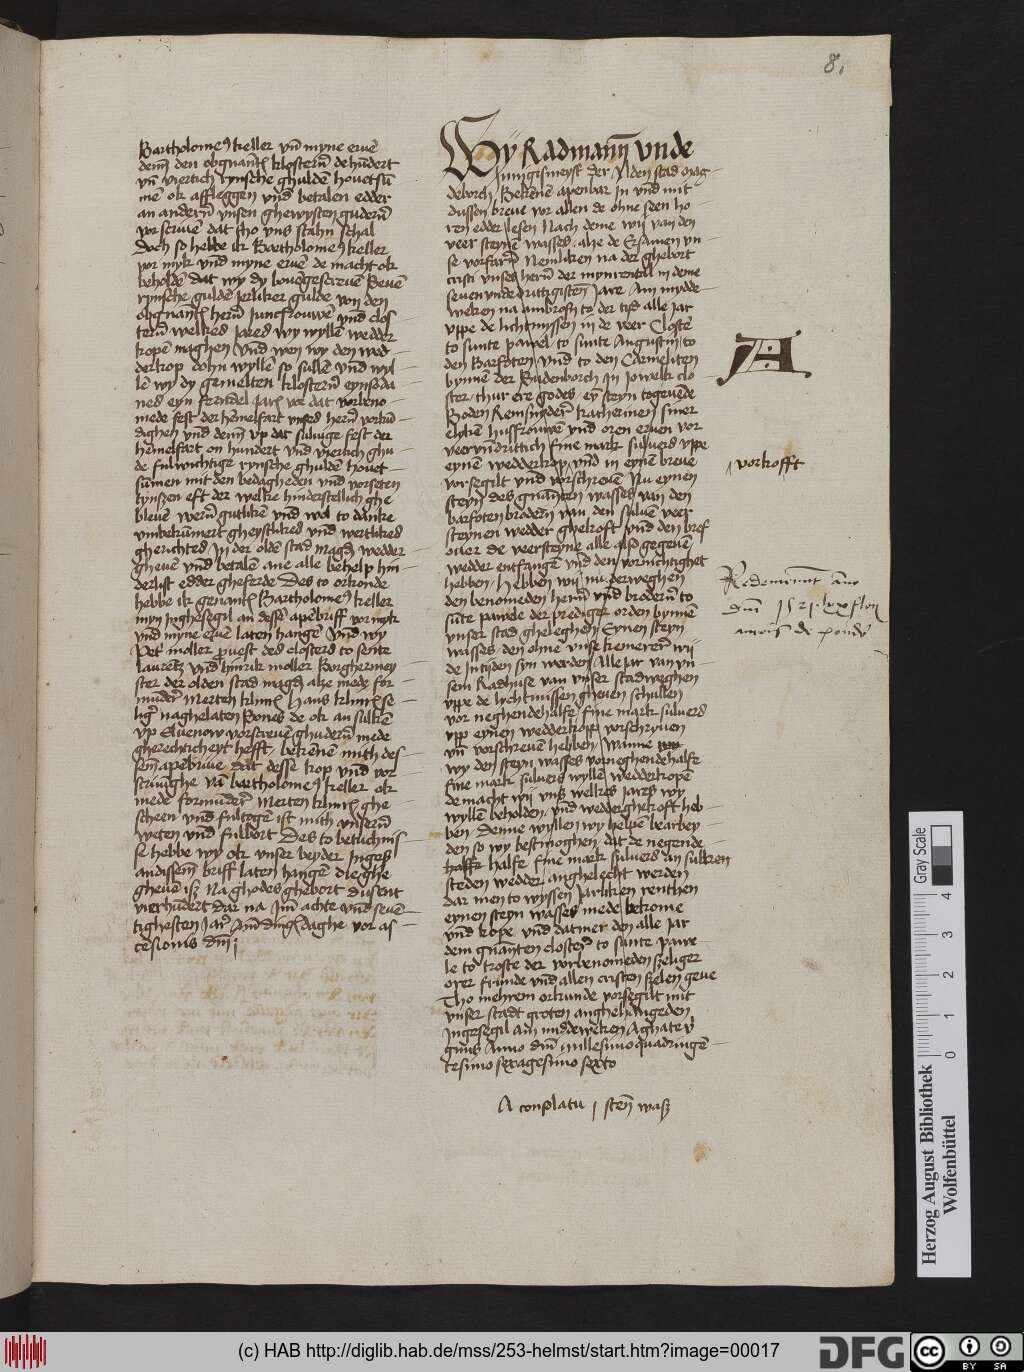 8.
Bartholomeꝰ keller vn̄ myne eruē
den̄ den obgnantē klostern̄ dehūdert
vn̄ viertich rynsche ghuldē houetsū
mē ok affleggen vnd̄ betalen edder
an andern̄ vnsen ghewysten gudern̄
vorscriuē dat sho vns stahn schal
Doch so hebbe ik Bartholomeꝰ keller
vor myk vnd̄ myne eruē de macht ok
beholdē dat wy dy bouēgescreuē
rynsche guldē jerliker gulde von den
obgnantē hern̄ Juncfrouwē vnd̄ clos
tern̄ welkes jares wy wyllē wedder
kopē maghen vnd̄ wen wy den wed
derkop dohn wyllē so sullē vnd̄ wyl
lē wy dy gemelten klostern̄
eyn jar vor dat
mede fest der hēmelfart vnses hern̄ vorkū
dighen vnd̄ denn̄ vp dat suluige fest der
hēmelfart on hundert vnd̄ viertich ghu
de fulwichtige rynsche ghuldē houet
sūmen mit den bedagheden vnd̄ vorseten
tynszen eft der welke hinderstellich ghe
bleuē wern̄ gutlikē vnd̄ wol to danke
vmbekūmert gheystlikes vnd̄ wertlikes
gherichtes in der oldē stad magd̄ wedder
gheuē vnd̄ betalē ane alle behelp hin
derlist edder gheferde Des to orkonde
hebbe ik genantē Bartholomeꝰ keller
myn inghesegil an dessē apēbriff vor myk
vnd̄ myne eruē laten hangē vnd̄ wy
Pet̄ moller ꝓuest des closters to sente
Laurētz vnd̄ hinrik moller Borghermey
ster der olden stad magd̄ alze mede for
munder̄ Merten klinkē Hans klinkē se
liḡ naghelaten sones de ok an sulkē
vp Aluenow vorscreuē ghudern̄ mede
gherechticheyt hefft bekēnē mith des
sem̄ apēbriue dat desse kop vnd̄ vor
scriuūghe vā bartholomeꝰ keller ok
mede formunder̄ Merten klinkē ghe
scheen vnd̄ fultogē ist mith vnsern̄
weten vnd̄ fulbort Des to betuchnis
se hebbe wy ok vnser beyder Inges
andissem̄ briff laten hangē die ghe
gheuē is Na ghodes ghebort dusent
vierhūdert dar na Jm̄ achte vnd̄ seuē
tighesten Jar̄ am̄ dinx̄daghe vor as
cēsionis dn̄i
Wÿ Radmann̄ vnde
Innigismeyst̄ der Olden stad mag
deborch Bekēnē apenbar in vnd̄ mit
dussen breue vor allen de ohne seen ho
ren edder lesen Nach deme wij van den
veer steynē wasses alze de Ersamen vn
se vorfarn̄ Nemliken na der ghebort
cristi vnses hern̄ der mynrentāl in deme
seuen vnde druttigisten Jare Am mydde
weken na ambrosij to der tijd alle jar
vppe de lichtmyssen in de veer Clostē
to sunte pawel to sunte Augustin to
den Barfoten vnd̄ to den Carmeliten
bynnē der Sudenborch In jowelk clo
ster thur ere godes eyn steyn togeuēde
Boden Remsnyder̄ katherinen siner
elykē husfrouwē vnd̄ oren eruen vor
veer vn̄druttich fine mark suluers vppe
eynē wedderkop vnd̄ in eynē breue
vorsegilt vnd̄ vorschreuē Nu eynen
steyn des gnantē wasses van den
barfoten brodern̄ van den suluē veer
steynen wedder ghekoft vnd̄ den bref
ouer de veersteyne alle also gegeuē
wedder entfangē vnd̄ den vornichtighet
hebben Hebben wij nu derweghen
den benomeden hern̄ vnd̄ brodern̄ to
sūte pawele der prediger orden bynnē
vnser stad gheleghen Eynen steyn
wasses den ohne vnse kemerer̄ wij
de intijden syn werden Alle Jar van vn
sem Radhuse van vnser stad weghen
vppe de lichtmissen gheuen schullen
vor neghendehalfe fine mark suluers
vpp eynen wedderkopp vorschryuen
vn̄ vorschreuē hebben Wanne
wy den steyn wasses vor neghendehalfe
fine mark suluers wyllē wedderkopē
de macht wij vns welkes jares wy
wyllē beholden vnd̄ wedderghekoft heb
ben denne wyllen wy helpē bearbey
den so wy best moghen dat de negende
halfe fine mark suluers an sulken
steden wedder anghelecht werden
dar men to wyssen jarliken renthen
eynen steyn wasses mede bekome
vnd̄ kope vnd̄ datmer den alle jar
dem gnanten closter̄ to sante pawe
le to troste der vorbenomeden szeliger
orer frunde vnd̄ allen cristen szelen geue
Tho mehrem orkunde vorsegilt mit
vnser stadt groten anghehangeden
Ingesegil Am middeweken Aghate v̄
gīnis Anno dn̄i millesimo quadringē
tesimo sexagesimo sexto
A consulatu j sten̄ wasz
A
vorkofft
Redemerunt an̄o
dn̄i 1521 lxx flor̄
(c) HAB http://diglib.hab.de/mss/253-helmst/start.htm?image=00017
Herzog August Bibliothek
Wolfenbüttel
Gray Scale
0 1 2 3 4
DFG
cc BY SA